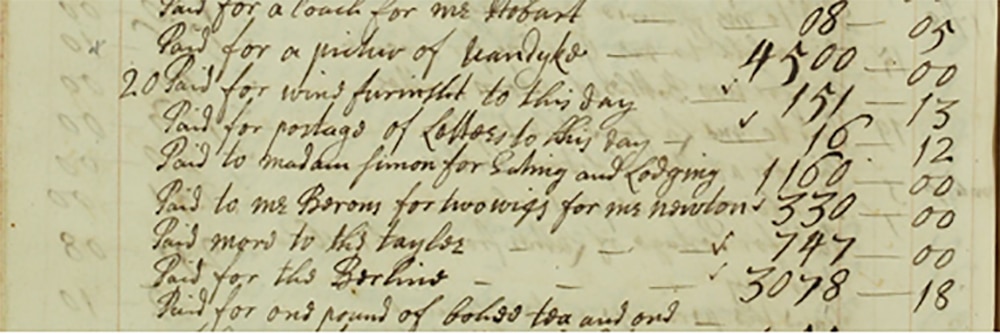 Paid for a Coach for mr Hobart — 08 — 05
Paid for a pictur of Vandyke — 4500 — 00
20 Paid for wine furinsht to this day — 151 — 13
Paid for postage of Letters to this day — 16 — 12
Paid to madam Simon for Eating and Lodging 1160 — 00
Paid to mr Berons for two wigs for mr newton 330 — 00
Paid more to the tayler — 747 — 00
Paid for the Berline — 3078 — 18
Paid for one pound of bohee tea and one —